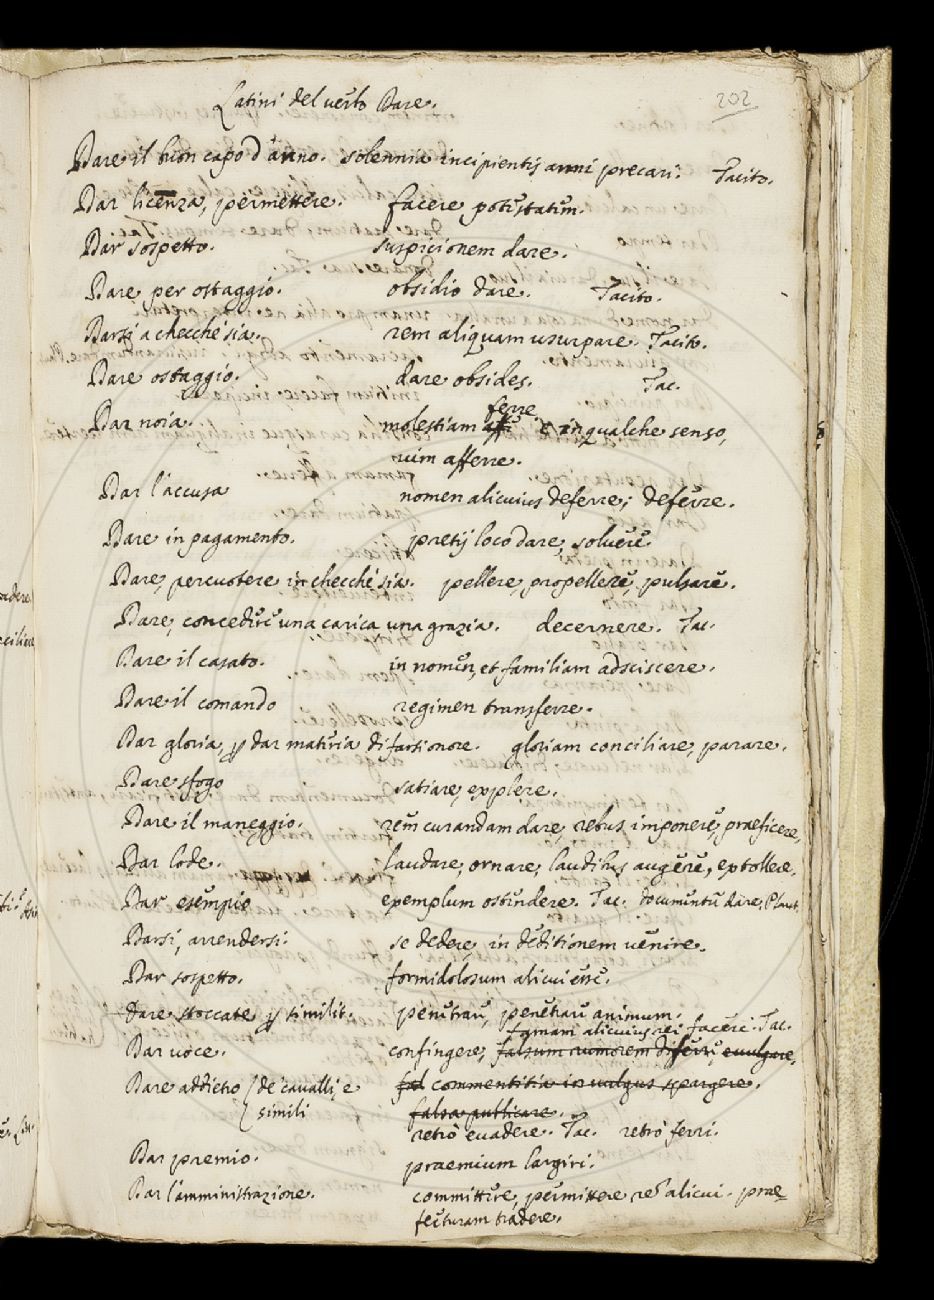 Latini del verbo Dare.
202
Dare il buon capo d'anno. solennia incipientis anni precari. Tacito.
Dar licenza, permettere. facere potestatem.
Dar sospetto. suspicionem dare.
Dare per ostaggio. obsidio dare. Tacito.
Darsi a checché sia. rem aliquam usurpare. Tacito.
Dare ostaggio. dare obsides. Tac.
ferre
Dar noia. molestiam e in qualche senso,
vim afferre.
Dar l'accusa nomen alicuius deferre; deferre.
Dare in pagamento. pretij loco dare, solvere.
Dare, percuotere in checché sia. pellere, propellere, pulsare.
Dare, concedere una carica una grazia. decernere. Tac.
Dare il casato. in nomen, et familiam adsciscere.
Dare il comando regimen transferre.
Dar gloria, dar materia di farsi onore. gloriam conciliare, parare.
Dare sfogo satiare, explere.
Dare il maneggio. rem curandam dare, rebus imponere, praeficere,
Dar lode. laudare, ornare, laudibus augere, extollere.
Dar esempio exemplum ostendere. Tac. documentum dare, Plaut.
Darsi, arrendersi. se dedere, in deditionem venire.
Dar sospetto. formidolosum alicui esse.
Dare stoccate similit. penetrare animum.
famam alicuius rei facere. Tac.
Dar voce. confingere, falsum rumorem differre, evulgare,
Dare addietro de' cavalli, e fal commentitia in vulgus spargere.
simili falsa publicare.
retrò evadere. Tac. retrò ferri.
Dar premio. praemium largiri.
Dar l'amministrazione. committere, permittere rem alicui. prae-
fecturam tradere.